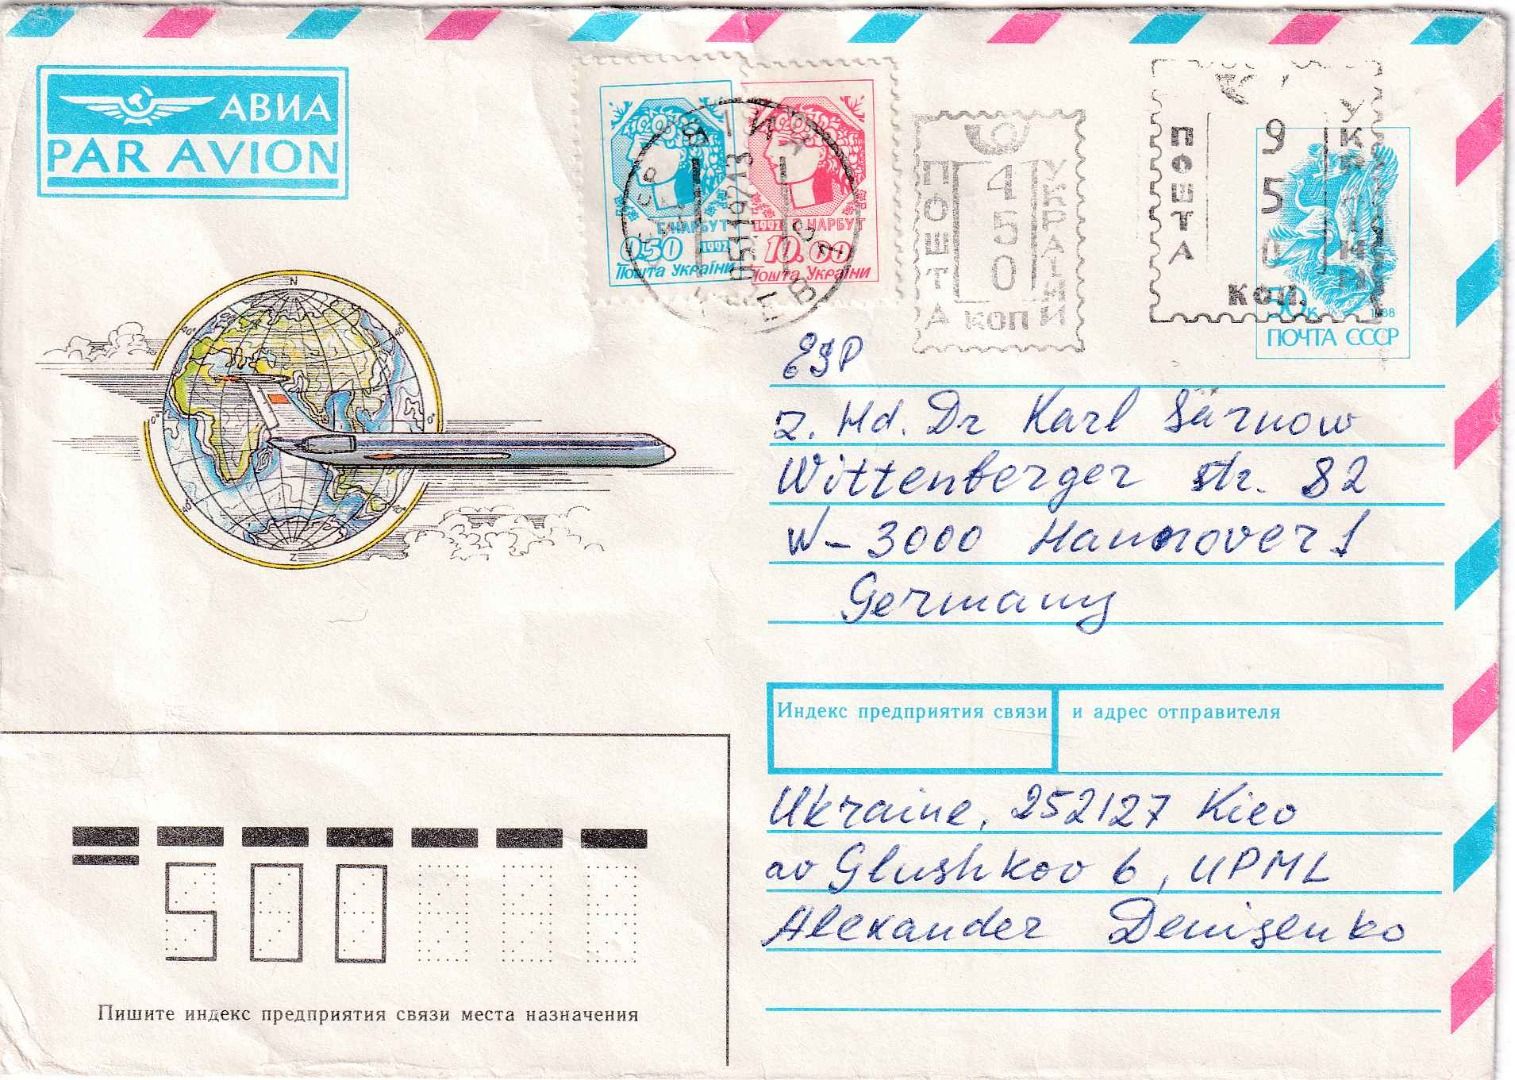 АВИА
PAR AVION
Г. НАРБУТ
0.50 1992
Пошта України
1992 Г. НАРБУТ
10.00
Пошта України
051192 13
ПОШТА
450
УКРАЇНИ
КОП
ПОШТА
950
УКРАЇНИ
КОП.
1988
ПОЧТА СССР
N
Z
EJP
z. Hd. Dr Karl Sarnow
Wittenberger str. 82
W-3000 Hannover 1
Germany
Индекс предприятия связи и адрес отправителя
Ukraine, 252127 Kiev
av Glushkov 6, UPML
Alexander Denisenko
500
Пишите индекс предприятия связи места назначения